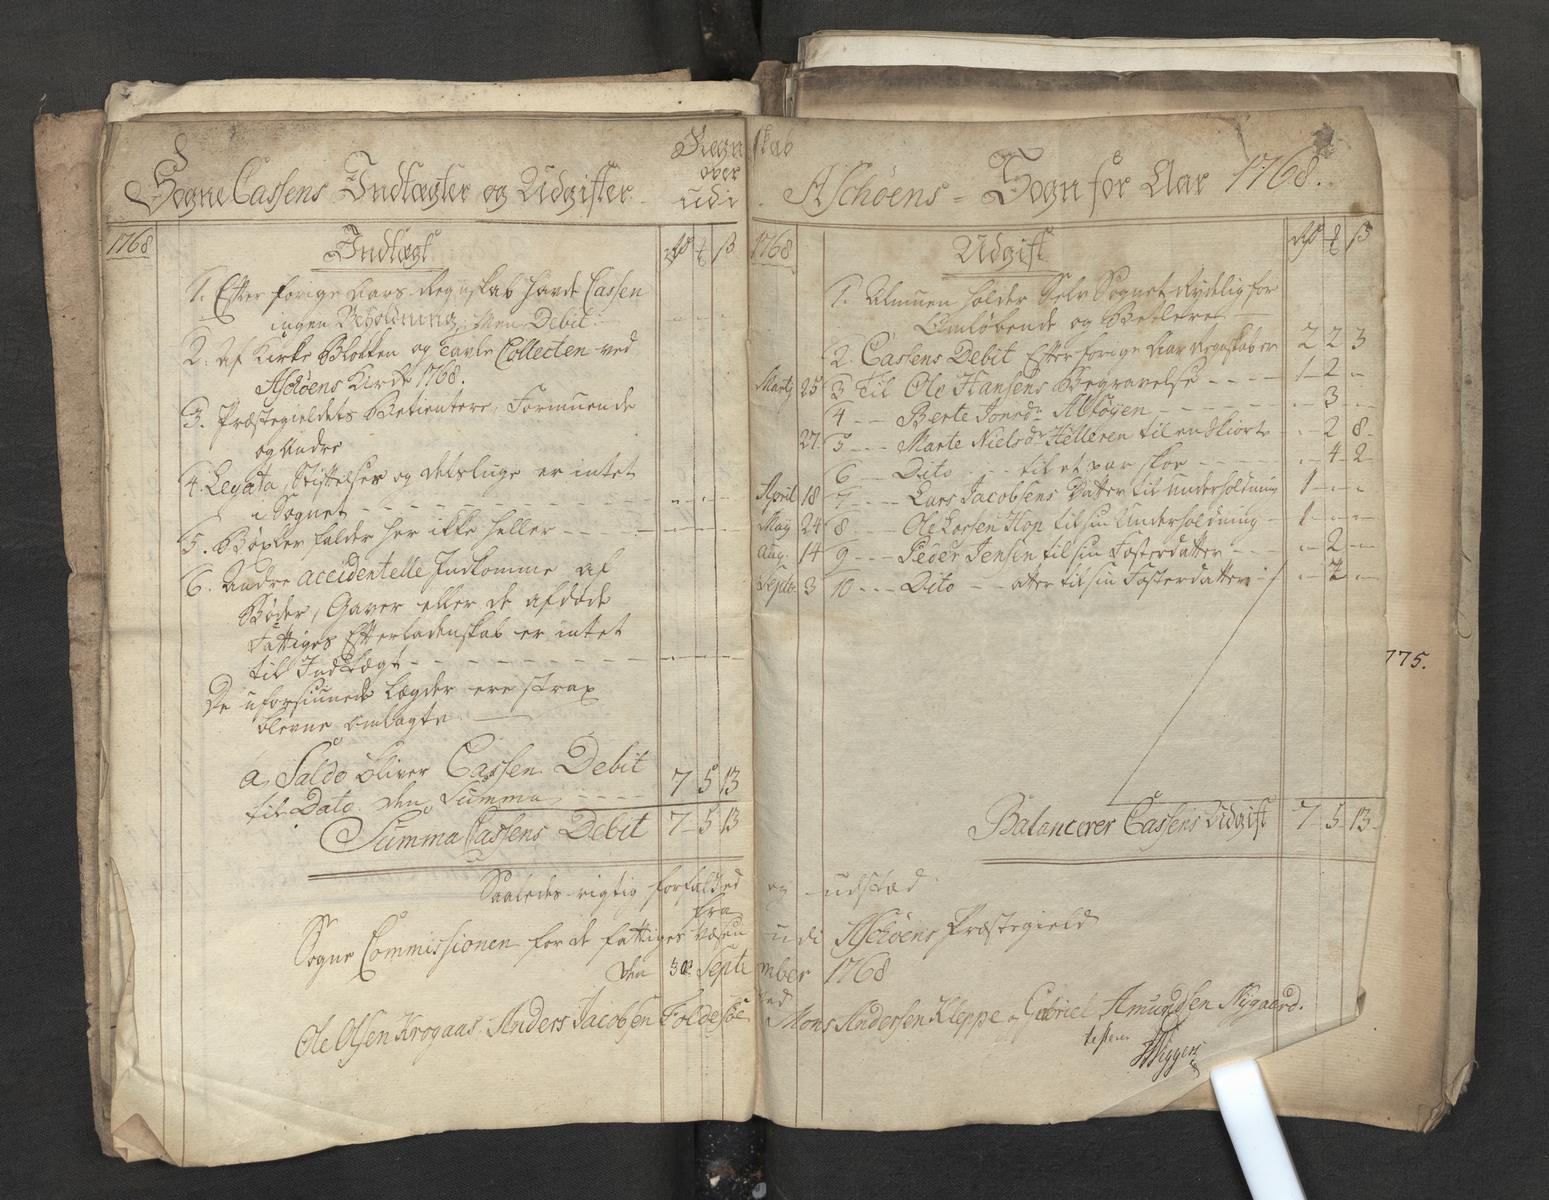 Regnskab
over
Sogne Cassens Indtægter og Udgifter udi Askøens Sogn for Aar 1768.
1768 Indtægt rdr ß
1. Efter forige Aars Regnskab havde Cassen
ingen Beholdning, Men Debit.
2. Af Kirke Blokken og Tavle Collecten ved
Askøens Kirke 1768.
3. Præstegieldets Betientere, Formuende
og Andre
4. Legata, Stiftelser og deslige er intet
i Sognet
5. Bøxler falder her ikke heller
6. Andre accidentelle Indkomme af
Bøder, Gaver eller de afdøde
Fattiges Efterladenskab er intet
til Indtægt
De uforsiunede Lægder ere strax
blevne ombragte
a Saldo bliver Cassen Debit
til Dato den Summa 7 5 13
Summa Cassens Debit 7 5 13
1768 Udgift rdr ß
1. Almuen holder Selv Sognet Rydelig for
Omløbende og Betlere
2. Cassens Debit Efter forige Aars Regnskab er 2 2 3
Martj 25 3 Til Ole Hansens Begravelse 1 2
4 Berte Jonsdr Alføyen 3
27. 5 Marte Nielsdr Helleren til en Skiorte 2 8
6 Dito til et par skoe 4 2
April 18 7 Lars Jacobsens Datter til underholdning 1
May 24 8 Ole Larsen Hop til sin Underholdning 1
Aug. 14 9 Peder Jensen til sin Fosterdatter 2
Septr 3 10 Dito ater til sin Fosterdatter 2
775.
Balancerer Cassens Udgift 7 5 13
Saaledes rigtig forfatted og udstæd
fra
Sogne Commissionen for de fattiges Væsen udi Askøens Præstegield
den 30 September 1768
Ole Olsen Krogaas. Anders Jacobsen Foldesøe Mons Andersen Kleppe Gabriel Amundsen Nygaard.
testerer
Wiggers